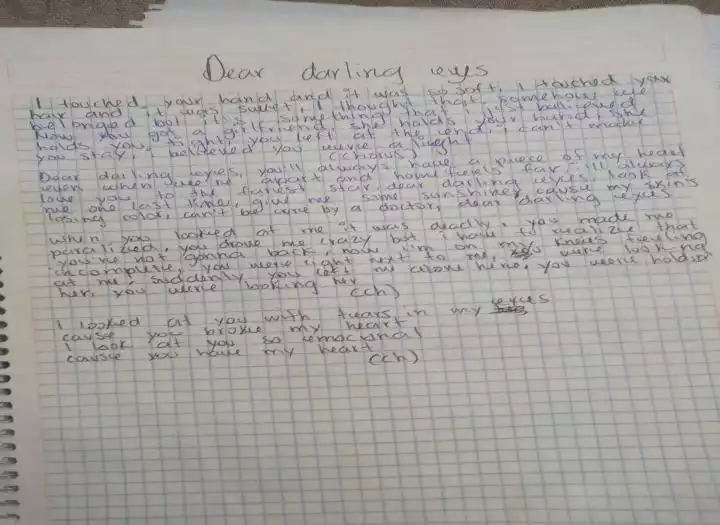 Dear darling eyes
I touched your hand and it was so soft, I touched your
hair and it was sweet, I thought that somehow we
belonged but it's something that I just believed
Now you got a girlfriend, she holds your hand, she
holds you tight, you left at the end, I can't make
you stay, I believed you were a light
(chorus)
Dear darling eyes, you'll always have a piece of my heart
even when we're apart and home feels far, I'll always
love you to the fariest star, dear darling eyes, look at
me one last time, give me some sunshine, cause my skin's
losing color, can't be cure by a doctor, dear darling eyes
when you looked at me it was deadly, you made me
paralized, you drove me crazy but I have to realize that
you're not gonna back, now I'm on my knees feeling
incomplete, you were right next to me, you were looking
at me, suddenly you left me alone here, you were holdin
her, you were looking her
(ch)
I looked at you with tears in my eyes
cause you broke my heart
I look at you so emocional
cause you have my heart
(ch)